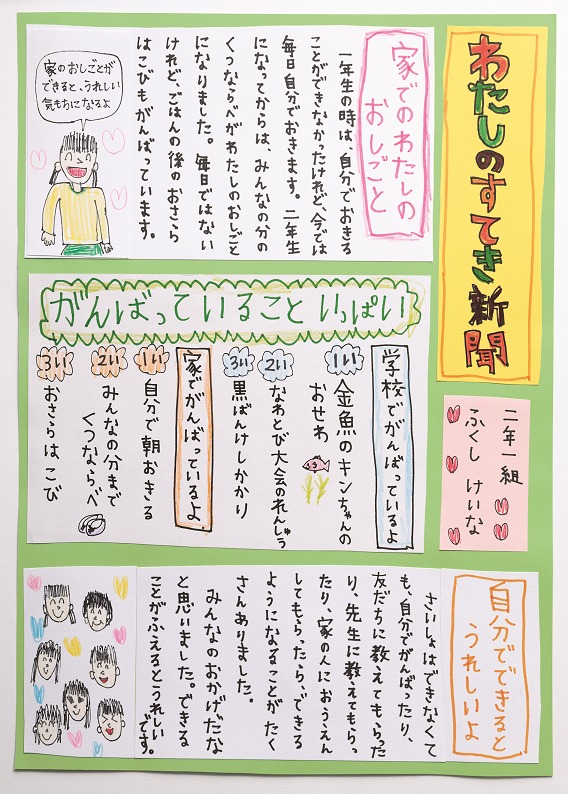 わたしのすてき新聞
二年一組
ふくし けいな
家でのわたしの
おしごと
一年生の時は、自分でおきる
ことができなかったけれど、今では
毎日自分でおきます。二年生
になってからは、みんなの分の
くつならべがわたしのおしごと
になりました。毎日ではない
けれど、ごはんの後のおさら
はこびもがんばっています。
家のおしごとが
できると、うれしい
気もちになるよ
がんばっていること いっぱい
学校でがんばっているよ
1い
金魚のキンちゃんの
おせわ
2い
なわとび大会のれんしゅう
3い
黒ばんけしかかり
家でがんばっているよ
1い
自分で朝おきる
2い
みんなの分まで
くつならべ
3い
おさらはこび
自分でできると
うれしいよ
さいしょはできなくて
も、自分でがんばったり、
友だちに教えてもらった
り、先生に教えてもらっ
たり、家の人におうえん
してもらったら、できる
ようになることがたく
さんありました。
みんなのおかげだな
と思いました。できる
ことがふえるとうれしい
です。